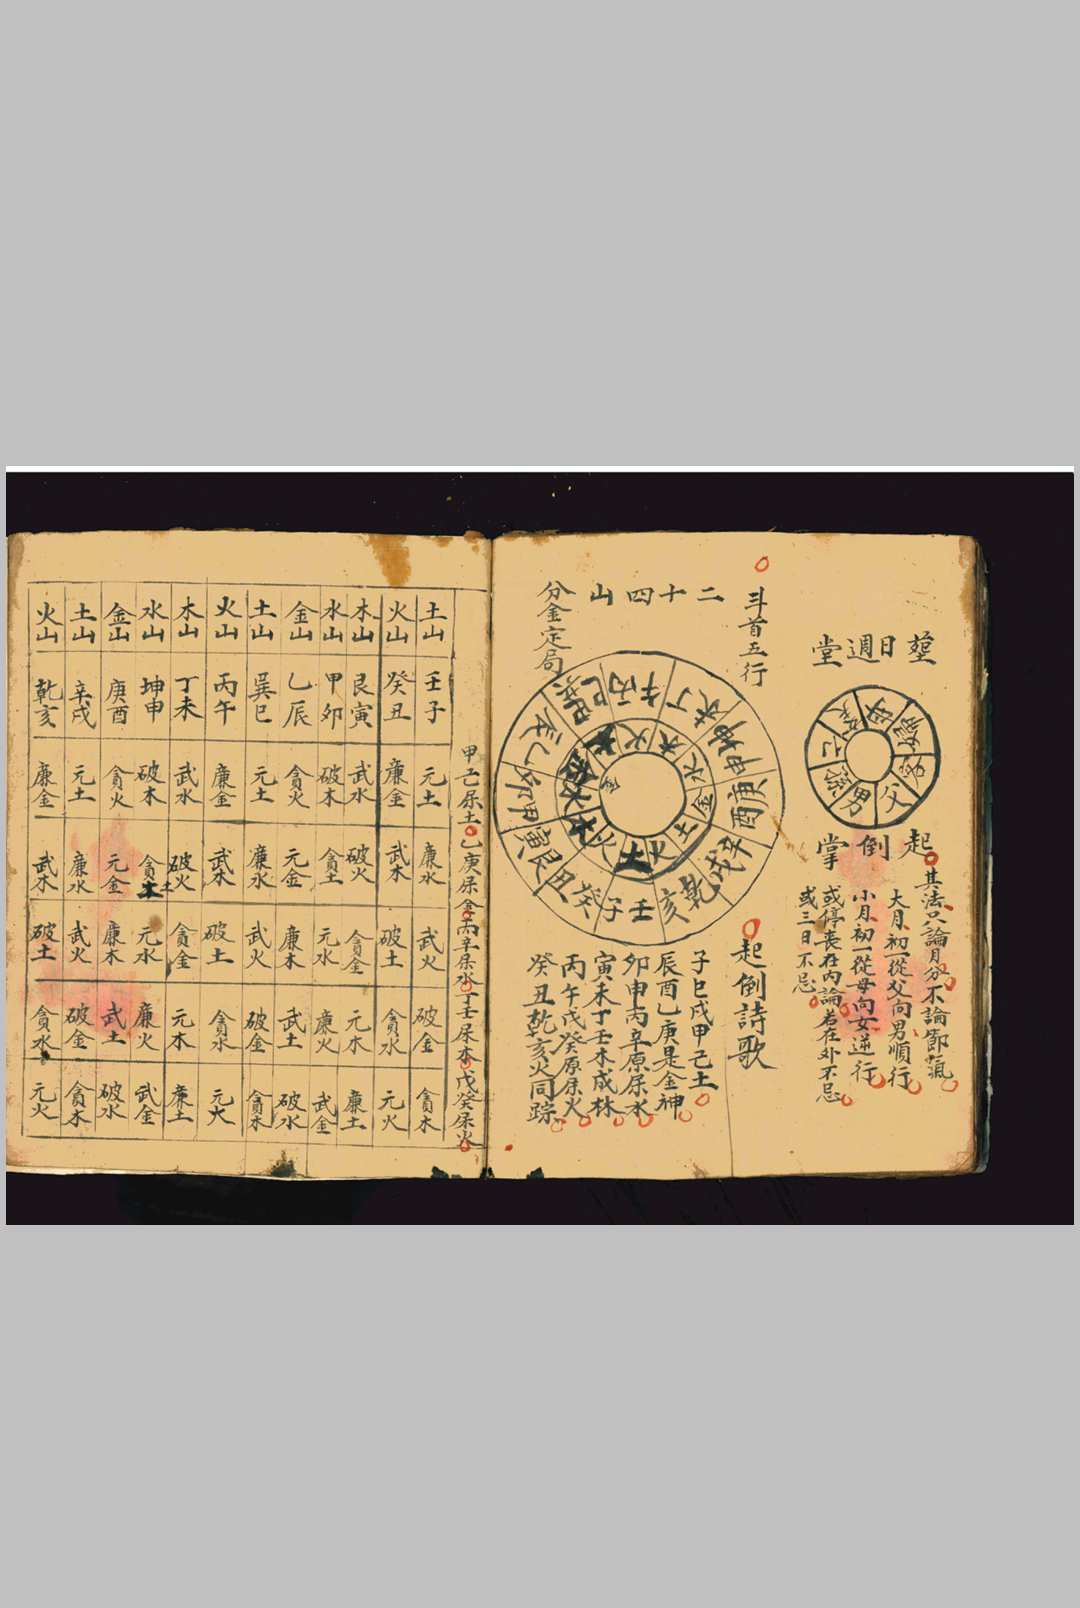 葬日週堂
父
男
孫
亡
女
母
婦
客
起倒掌
其法只論月分不論節氣
大月初一從父向男順行
小月初一從母向女逆行
或停喪在內論若在外不忌
或三日不忌
斗首五行
二十四山
分金定局
壬子
癸丑
艮寅
甲卯
乙辰
巽巳
丙午
丁未
坤申
庚酉
辛戌
乾亥
土
火
木
水
金
土
火
木
水
金
土
火
起倒詩歌
子巳戌甲己土
辰酉乙庚是金神
卯申丙辛原屬水
寅未丁壬木成林
丙午戊癸原屬火
癸丑乾亥火同踪
甲己屬土乙庚屬金丙辛屬水丁壬屬木戊癸屬火
土山 壬子 元土 廉水 武火 破金 貪木
火山 癸丑 廉金 武木 破土 貪水 元火
木山 艮寅 武水 破火 貪金 元木 廉土
水山 甲卯 破木 貪土 元水 廉火 武金
金山 乙辰 貪火 元金 廉木 武土 破水
土山 巽巳 元土 廉水 武火 破金 貪木
火山 丙午 廉金 武木 破土 貪水 元火
木山 丁未 武水 破火 貪金 元木 廉土
水山 坤申 破木 貪土 元水 廉火 武金
金山 庚酉 貪火 元金 廉木 武土 破水
土山 辛戌 元土 廉水 武火 破金 貪木
火山 乾亥 廉金 武木 破土 貪水 元火